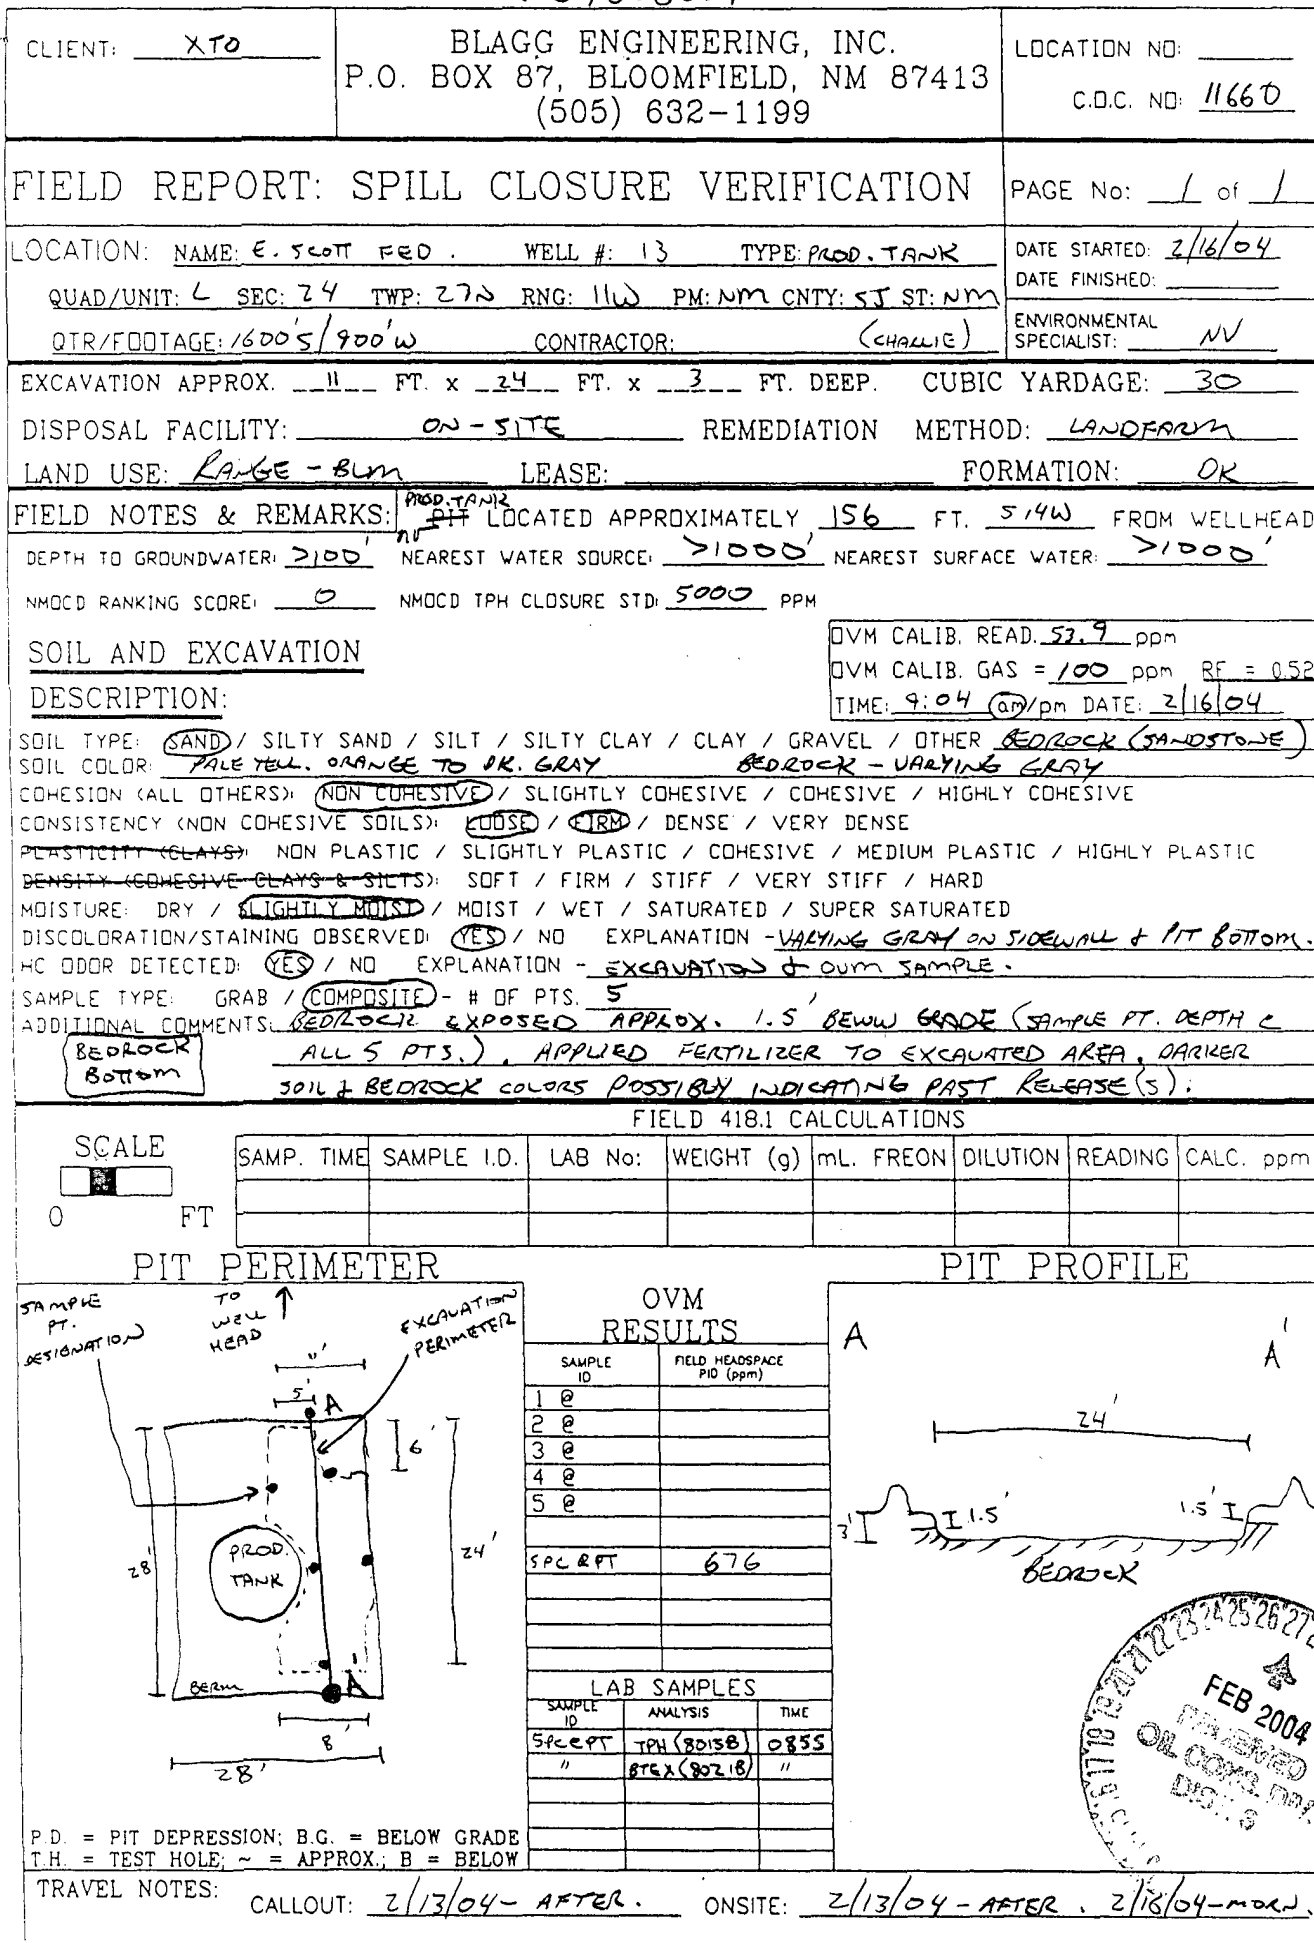 CLIENT: XTO
BLAGG ENGINEERING, INC.
P.O. BOX 87, BLOOMFIELD, NM 87413
(505) 632-1199
LOCATION NO:
C.O.C. NO: 11660
FIELD REPORT: SPILL CLOSURE VERIFICATION
PAGE No: 1 of 1
LOCATION: NAME: E. SCOTT FED. WELL #: 13 TYPE: PROD. TANK
QUAD/UNIT: L SEC: 24 TWP: 27N RNG: 11W PM: NM CNTY: SJ ST: NM
QTR/FOOTAGE: 1600'S/900'W CONTRACTOR: (CHARLIE)
DATE STARTED: 2/16/04
DATE FINISHED:
ENVIRONMENTAL
SPECIALIST: NV
EXCAVATION APPROX. 11 FT. x 24 FT. x 3 FT. DEEP. CUBIC YARDAGE: 30
DISPOSAL FACILITY: ON-SITE REMEDIATION METHOD: LANDFARM
LAND USE: RANGE - BLM LEASE: FORMATION: DK
FIELD NOTES & REMARKS: PROD. TANK PIT LOCATED APPROXIMATELY 156 FT. S14W FROM WELLHEAD
nv
DEPTH TO GROUNDWATER: >100' NEAREST WATER SOURCE: >1000' NEAREST SURFACE WATER: >1000'
NMOCD RANKING SCORE: 0 NMOCD TPH CLOSURE STD: 5000 PPM
SOIL AND EXCAVATION
DESCRIPTION:
OVM CALIB. READ. 53.9 ppm
OVM CALIB. GAS = 100 ppm RF = 0.52
TIME: 9:04 am/pm DATE: 2/16/04
SOIL TYPE: SAND / SILTY SAND / SILT / SILTY CLAY / CLAY / GRAVEL / OTHER BEDROCK (SANDSTONE)
SOIL COLOR: PALE YELL. ORANGE TO DK. GRAY BEDROCK - VARYING GRAY
COHESION (ALL OTHERS): NON COHESIVE / SLIGHTLY COHESIVE / COHESIVE / HIGHLY COHESIVE
CONSISTENCY (NON COHESIVE SOILS): LOOSE / FIRM / DENSE / VERY DENSE
PLASTICITY (CLAYS): NON PLASTIC / SLIGHTLY PLASTIC / COHESIVE / MEDIUM PLASTIC / HIGHLY PLASTIC
DENSITY (COHESIVE CLAYS & SILTS): SOFT / FIRM / STIFF / VERY STIFF / HARD
MOISTURE: DRY / SLIGHTLY MOIST / MOIST / WET / SATURATED / SUPER SATURATED
DISCOLORATION/STAINING OBSERVED: YES / NO EXPLANATION - VARYING GRAY ON SIDEWALL & PIT BOTTOM.
HC ODOR DETECTED: YES / NO EXPLANATION - EXCAVATION & OVM SAMPLE.
SAMPLE TYPE: GRAB / COMPOSITE - # OF PTS. 5
ADDITIONAL COMMENTS: BEDROCK EXPOSED APPROX. 1.5' BELOW GRADE (SAMPLE PT. DEPTH @
ALL 5 PTS.). APPLIED FERTILIZER TO EXCAVATED AREA. DARKER
SOIL & BEDROCK COLORS POSSIBLY INDICATING PAST RELEASE(S).
BEDROCK
BOTTOM
FIELD 418.1 CALCULATIONS
SCALE
0 FT
SAMP. TIME SAMPLE I.D. LAB No: WEIGHT (g) mL. FREON DILUTION READING CALC. ppm
PIT PERIMETER
SAMPLE
PT.
DESIGNATION
TO
WELL
HEAD
EXCAVATION
PERIMETER
11'
5'
A
6'
28'
24'
PROD.
TANK
BERM
A'
8'
28'
OVM
RESULTS
SAMPLE ID FIELD HEADSPACE PID (ppm)
1 @
2 @
3 @
4 @
5 @
5PC @ PT 676
LAB SAMPLES
SAMPLE ID ANALYSIS TIME
5PC @ PT TPH (8015B) 0855
" BTEX (8021B) "
PIT PROFILE
A A'
24'
3' 1.5' 1.5'
BEDROCK
FEB 2004
RECEIVED
OIL CONS. DIV.
DIST. 3
P.D. = PIT DEPRESSION; B.G. = BELOW GRADE
T.H. = TEST HOLE; ~ = APPROX.; B = BELOW
TRAVEL NOTES: CALLOUT: 2/13/04 - AFTER. ONSITE: 2/13/04 - AFTER. 2/16/04 - MORN.